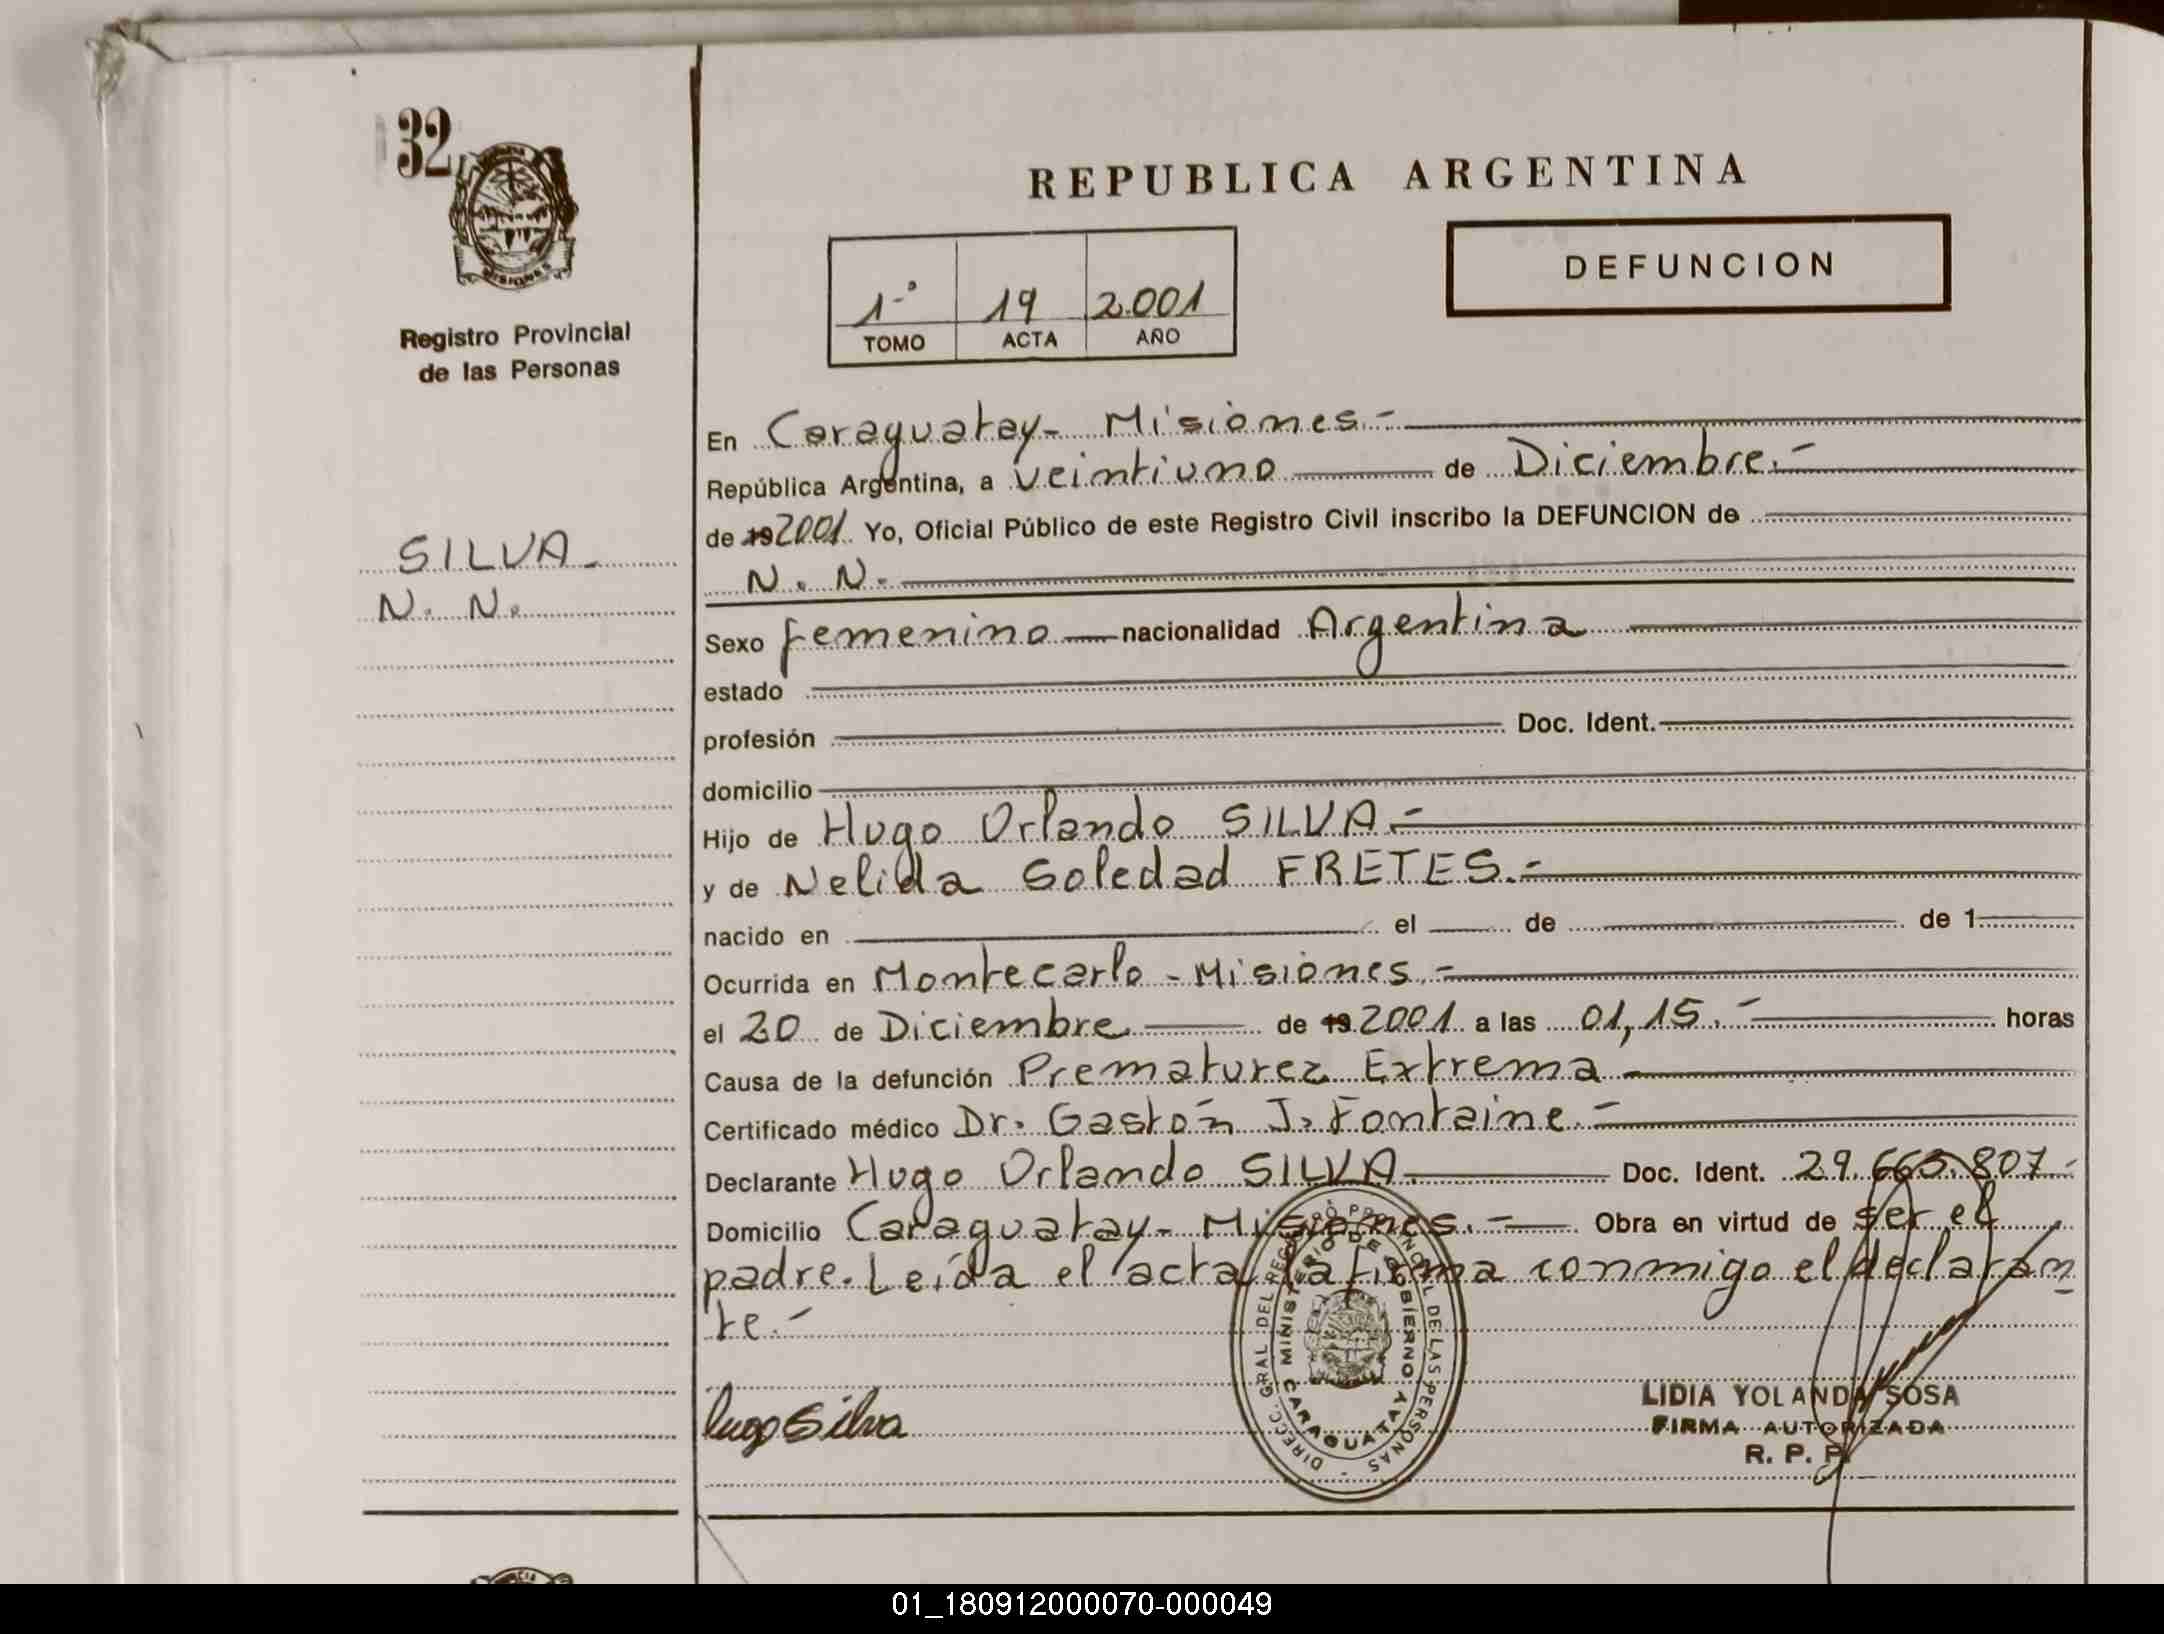 32
MISIONES
Registro Provincial
de las Personas
SILVA.
N. N.
REPUBLICA ARGENTINA
1-º 19 2.001
TOMO ACTA AÑO
DEFUNCION
En Caraguatay- Misiones.-
República Argentina, a veintiuno de Diciembre.-
de 192001. Yo, Oficial Público de este Registro Civil inscribo la DEFUNCION de
N. N.
Sexo femenino nacionalidad Argentina
estado
profesión Doc. Ident.
domicilio
Hijo de Hugo Orlando SILVA.-
y de Nelida Soledad FRETES.-
nacido en el de de 1
Ocurrida en Montecarlo - Misiones.-
el 20 de Diciembre. de 192001 a las 01,15.- horas
Causa de la defunción Prematurez Extrema
Certificado médico Dr. Gastón J. Fontaine.-
Declarante Hugo Orlando SILVA. Doc. Ident. 29.663.807.-
Domicilio Caraguatay- Misiones.- Obra en virtud de ser el
padre. Leída el acta la firma conmigo el declaran
te.-
hugo Silva
DIRECC. GRAL. DEL REGISTRO PROVINCIAL DE LAS PERSONAS
MINISTERIO DE GOBIERNO
CARAGUATAY
LIDIA YOLANDA SOSA
FIRMA AUTORIZADA
R. P. P.
01_180912000070-000049